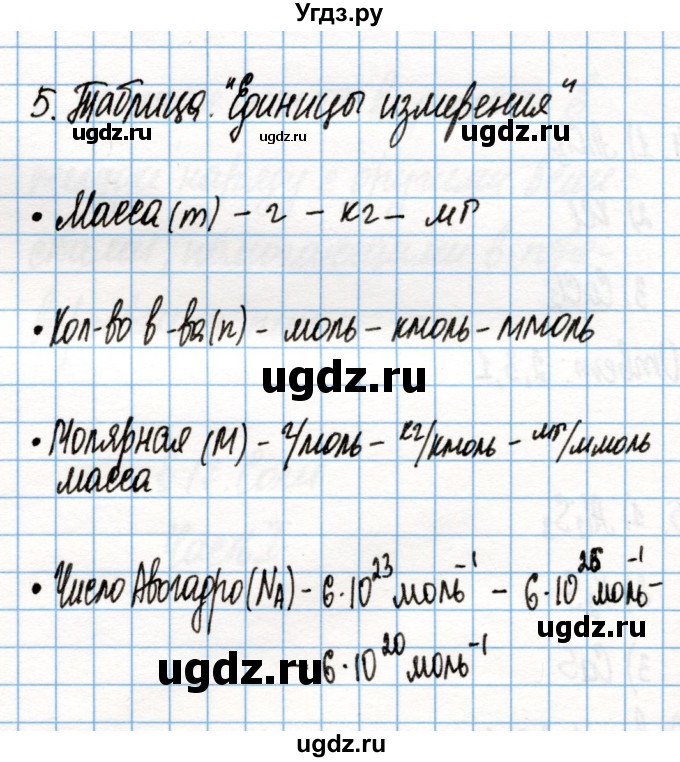 Угдз.ру
5. Таблица. "Единицы измерения"
ugdz.ru ugdz.ru ugdz.ru
• Масса (m) – г – кг – мг
ugdz.ru ugdz.ru
• Кол-во в-ва (n) – моль – кмоль – ммоль
ugdz.ru
• Молярная (M) – г/моль – кг/кмоль – мг/ммоль
масса
• Число Авогадро (NA) – 6·10²³ моль⁻¹ – 6·10²⁶ моль⁻¹ –
ugdz.ru
6·10²⁰ моль⁻¹
ugdz.ru
ugdz.ru